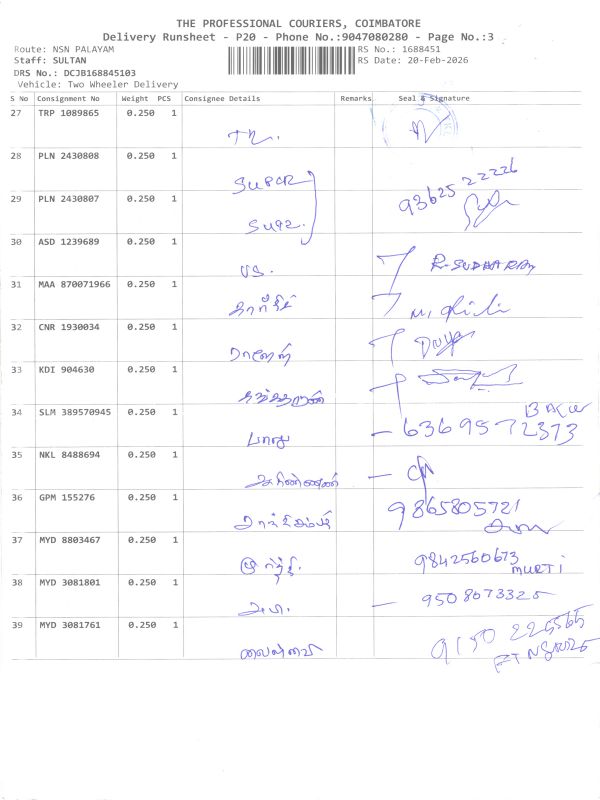 THE PROFESSIONAL COURIERS, COIMBATORE
Delivery Runsheet - P20 - Phone No.:9047080280 - Page No.:3
Route: NSN PALAYAM RS No.: 1688451
Staff: SULTAN RS Date: 20-Feb-2026
DRS No.: DCJB168845103
Vehicle: Two Wheeler Delivery
S No Consignment No Weight PCS Consignee Details Remarks Seal & Signature
27 TRP 1089865 0.250 1
28 PLN 2430808 0.250 1
SUPER 93625 22226
29 PLN 2430807 0.250 1
30 ASD 1239689 0.250 1
VS. R-SUDHARAM
31 MAA 870071966 0.250 1
32 CNR 1930034 0.250 1
Divya
33 KDI 904630 0.250 1
34 SLM 389570945 0.250 1
பாலு - 6369572373
35 NKL 8488694 0.250 1
36 GPM 155276 0.250 1
9865805721
37 MYD 8803467 0.250 1
மூர்த்தி. 9842560673
MURTI
38 MYD 3081801 0.250 1
அபி. - 9508073325
39 MYD 3081761 0.250 1
9150 225565